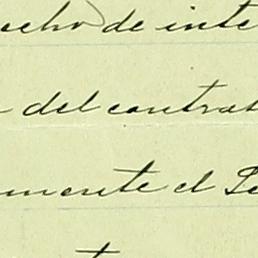 echo de inte
del contrat
mente el Se